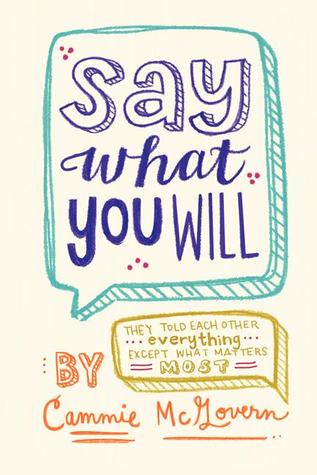 say
what
YOU WILL
THEY TOLD EACH OTHER
everything
EXCEPT WHAT MATTERS
MOST
BY
Cammie McGovern